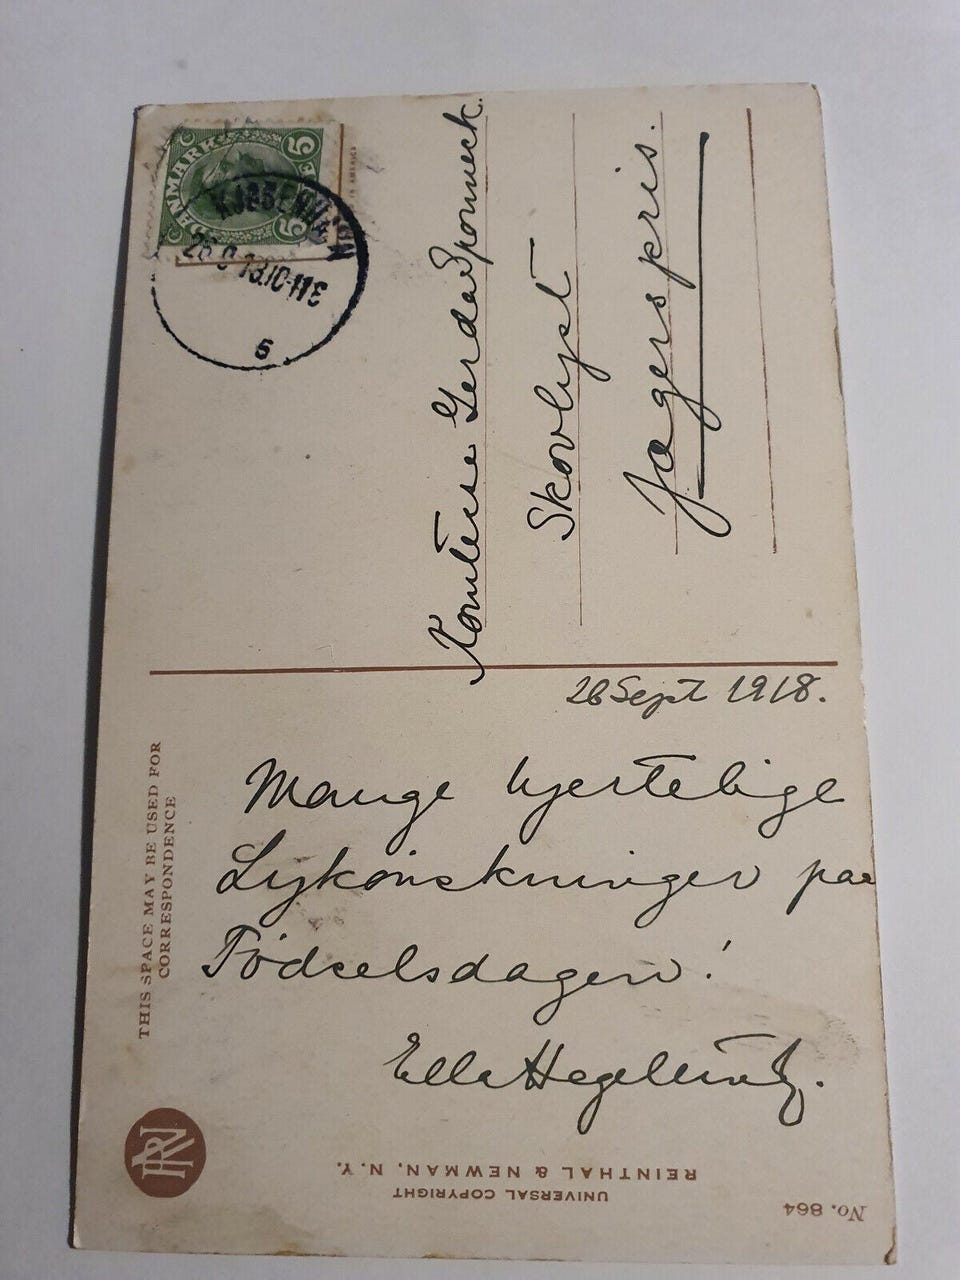 DANMARK
5 5
KJØBENHAVN
26 9 18.10-11E
5
Komtesse Gerda Sponneck.
Skovlyst
Jægerspris.
26 Sept 1918.
Mange hjertelige
Lykønskninger paa
Fødselsdagen!
Ella Hegelund.
THIS SPACE MAY BE USED FOR
CORRESPONDENCE
RN
REINTHAL & NEWMAN, N.Y.
UNIVERSAL COPYRIGHT
No. 864